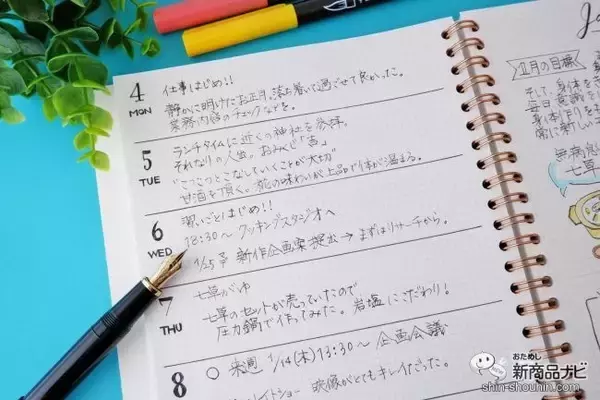 4 MON
仕事はじめ!!
静かに明けたお正月。落ち着いて過ごせて良かった。
業務内容のチェックなどを。
5 TUE
ランチタイムに近くの神社を参拝。
それなりの人出。おみくじ「吉」
"こつこつとこなしていくことが大切"
甘酒を頂く。糀の味わいが上品で体が温まる。
6 WED
習いごとはじめ!!
18:30〜クッキングスタジオへ
1/25〆 新作企画案提出→まずはリサーチから。
7 THU
七草がゆ
七草のセットが売っていたので
圧力鍋で作ってみた。岩塩にこだわり!
8
○ 来週 1/14(木)13:30〜 企画会議
イトショー 映像がとてもキレイだった。
Ja
正月の目標
そして、身体を
毎日意識を
身体作りを
常に新し
無病息
七草
おためし
新商品ナビ
shin-shouhin.com